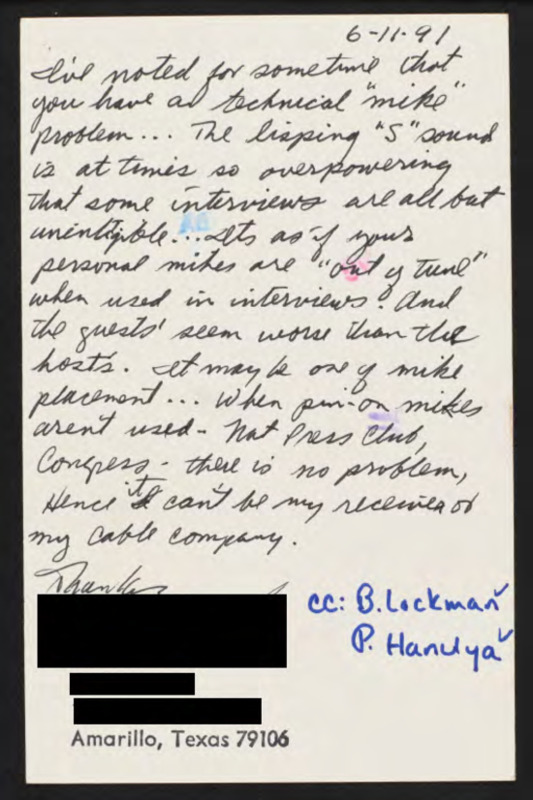 6-11-91
I've noted for sometime that
you have a technical "mike"
problem... The lisping "S" sound
is at times so overpowering
that some interviews are all but
unintelgible... Its as if your
personal mikes are "out of tune"
when used in interviews. And
the guests' seem worse than the
hosts'. It may be one of mike
placement... When pin-on mikes
arent used - Nat Press Club,
Congress - there is no problem,
Hence it can't be my receiver or
my cable company.
Thanks
cc: B. Lockman
P. Hanulya
Amarillo, Texas 79106